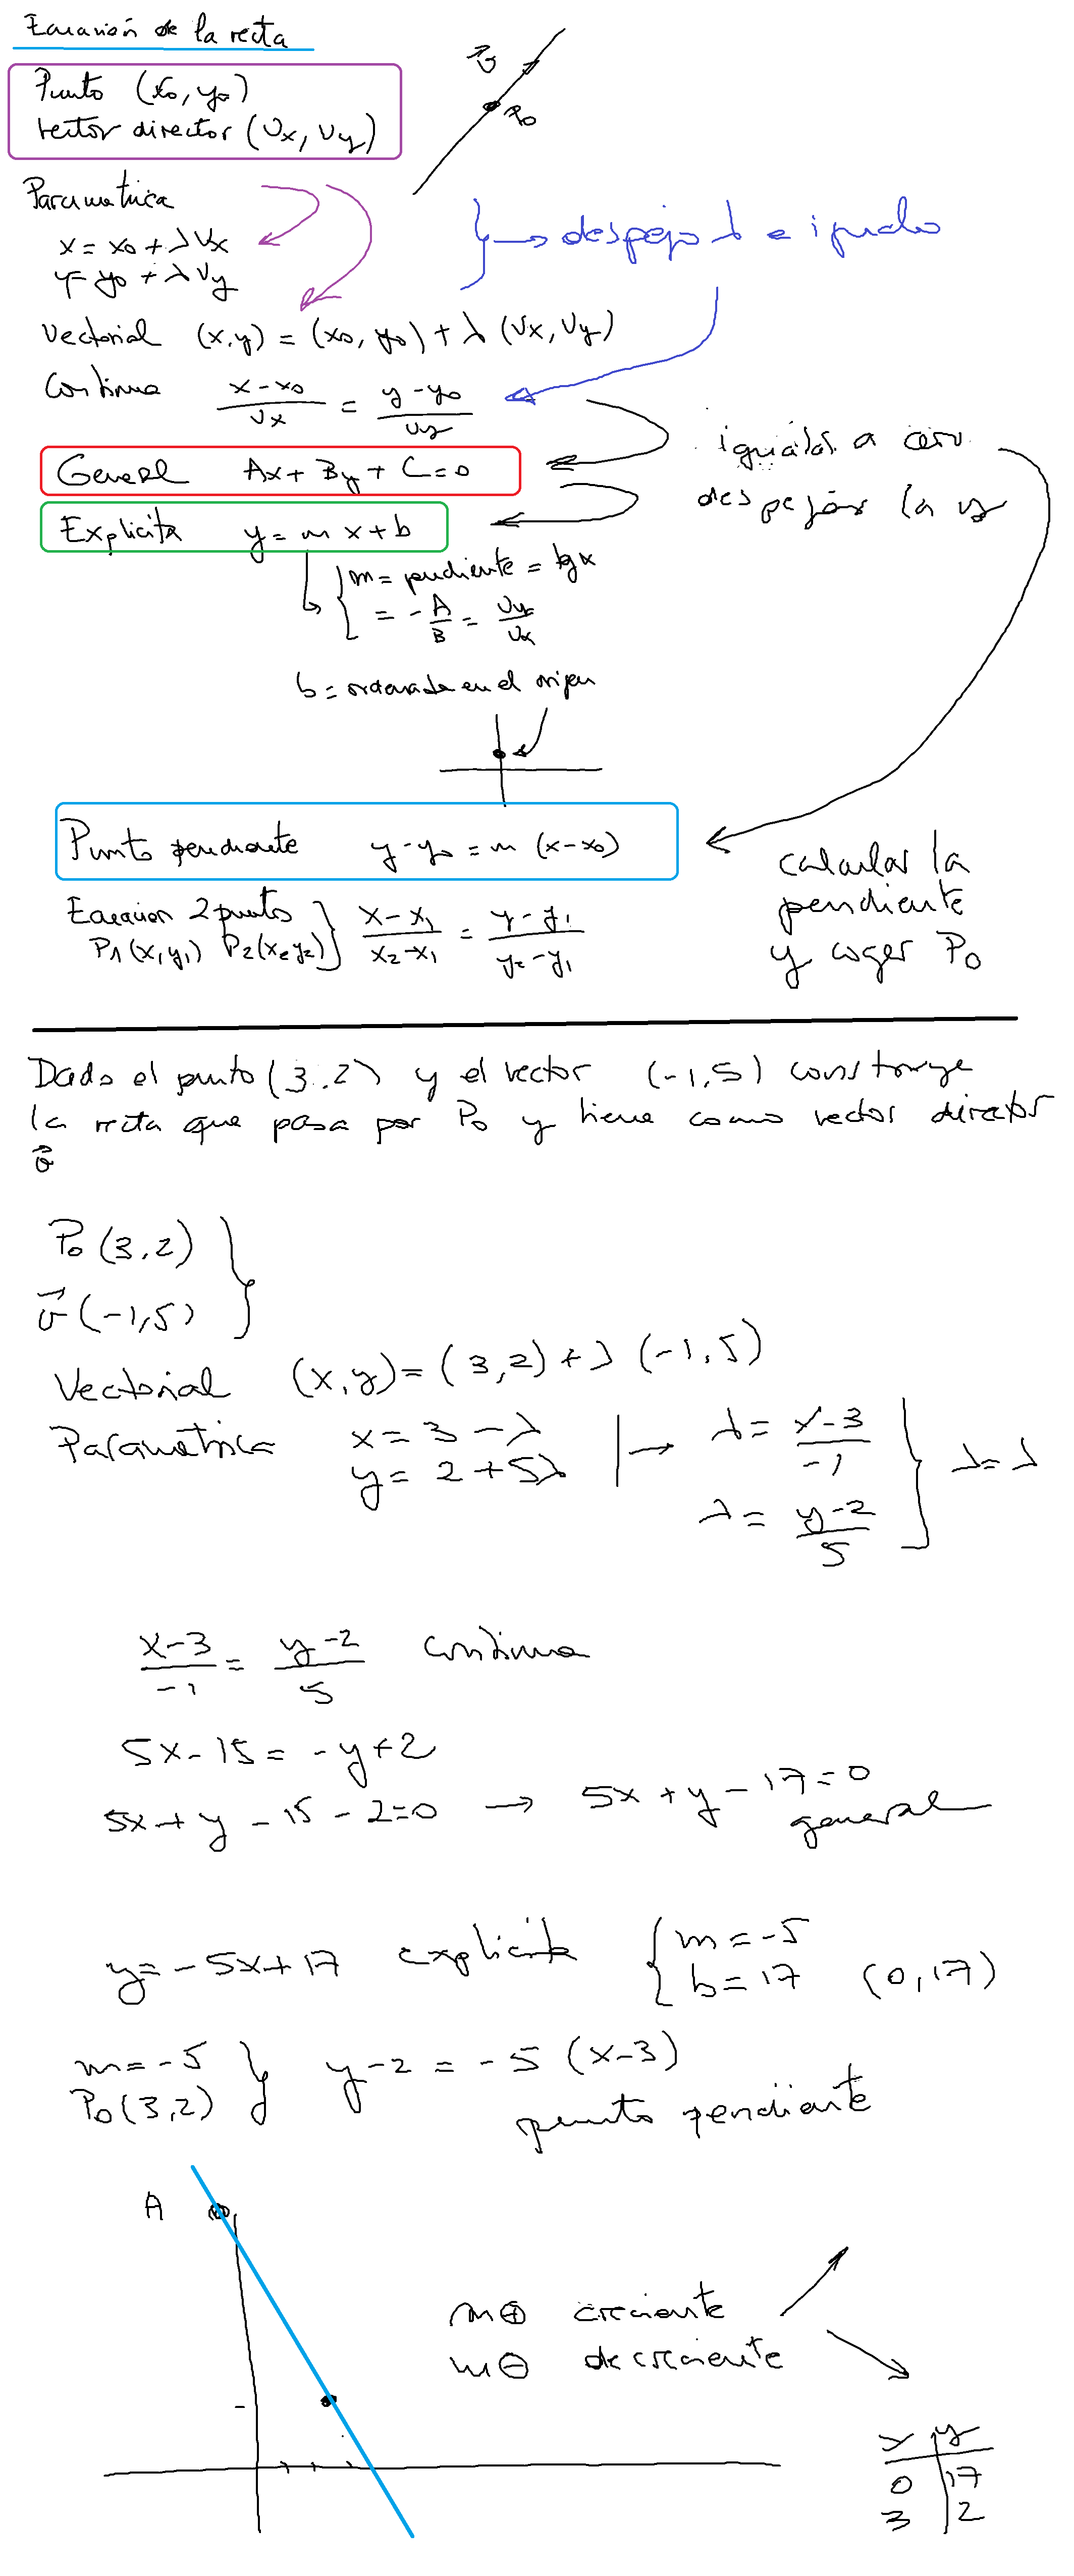 Ecuación de la recta
Punto (x₀, y₀)
vector director (Vx, Vy)
v⃗
P₀
Parametrica
x = x₀ + λVx
y = y₀ + λVy
} → despejo λ e igualo
Vectorial (x,y) = (x₀, y₀) + λ (Vx, Vy)
Continua (x - x₀)/Vx = (y - y₀)/Vy
igualar a cero
General Ax + By + C = 0
despejar la y
Explicita y = m x + b
m = pendiente = tg α
= -A/B = Vy/Vx
b = ordenada en el origen
Punto pendiente y - y₀ = m (x - x₀)
calcular la
pendiente
y coger P₀
Ecuacion 2 puntos
P₁(x₁y₁) P₂(x₂y₂) } (x - x₁)/(x₂ - x₁) = (y - y₁)/(y₂ - y₁)
Dado el punto (3,2) y el vector (-1,5) construye
la recta que pasa por P₀ y tiene como vector director
v⃗
P₀ (3,2)
v⃗ (-1,5) }
Vectorial (x,y) = (3,2) + λ (-1,5)
Parametrica x = 3 - λ
y = 2 + 5λ
→ λ = (x-3)/-1
λ = (y-2)/5
} λ = λ
(x-3)/-1 = (y-2)/5 continua
5x - 15 = -y + 2
5x + y - 15 - 2 = 0 → 5x + y - 17 = 0
general
y = -5x + 17 explicita { m = -5
b = 17 (0,17)
m = -5
P₀(3,2) } y - 2 = -5 (x-3)
punto pendiente
A
m⊕ creciente
m⊖ decreciente
x y
0 17
3 2